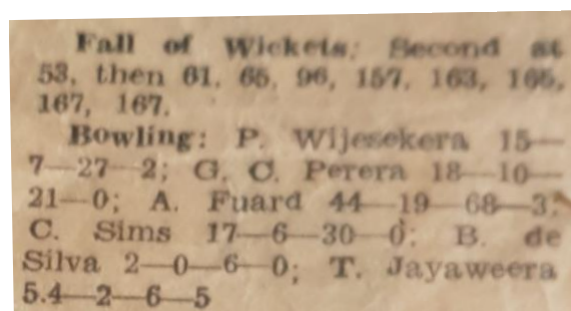 Fall of Wickets: Second at
53, then 61, 65, 96, 157, 163, 165,
167, 167.
Bowling: P. Wijesekera 15—
7—27—2; G. C. Perera 18—10—
21—0; A. Fuard 44—19—68—3;
C. Sims 17—6—30—0; B. de
Silva 2—0—6—0; T. Jayaweera
5.4—2—6—5